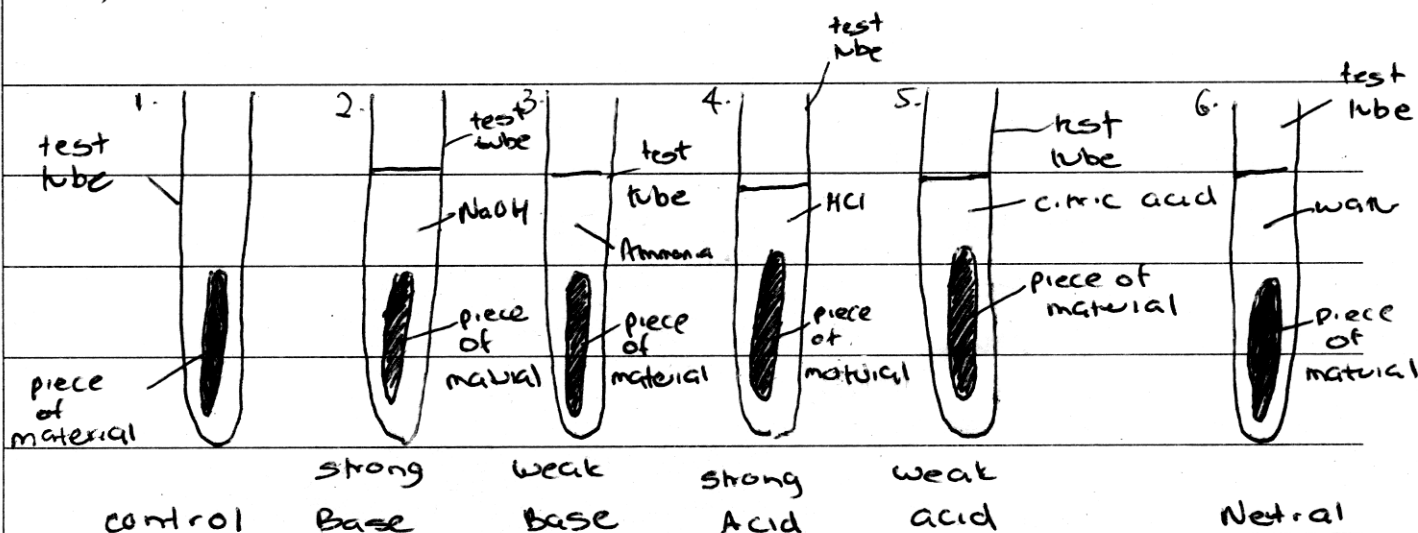 test
tube
1.
test
tube
piece
of
material
control
2.
test
tube
NaOH
piece
of
matrial
strong
Base
3.
test
tube
Ammonia
piece
of
material
weak
Base
4.
test
tube
HCl
piece
of
material
strong
Acid
5.
test
tube
citric acid
piece of
material
weak
acid
6.
test
tube
water
piece
of
material
Netral